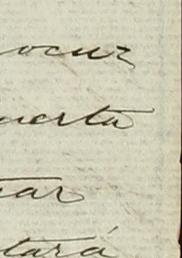 ocur
uerta
ar
tará